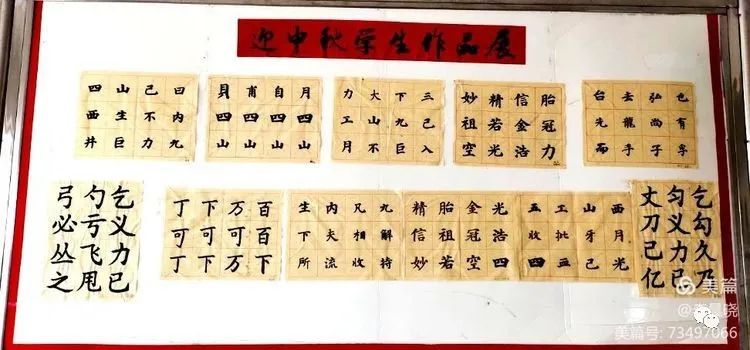 迎中秋学生作品展
四山己曰
西生不内
井巨力九
貝甫自月
四四四四
山山山山
力大下三
工山九己
月不巨入
妙精信胎
祖若金冠
空光浩力
台去弘也
先龍尚有
而手子孚
弓勺乞
必亏义
丛飞力
之甩已
丁下万百
可可可百
丁下万下
生内凡九
下夫相解
所流收持
精胎金光
信祖冠浩
妙若空四
五工山西
收批牙月
四亚己光
丈匀乞
刀义勾
己力久
亿已乃
美篇
美篇号: 73497066